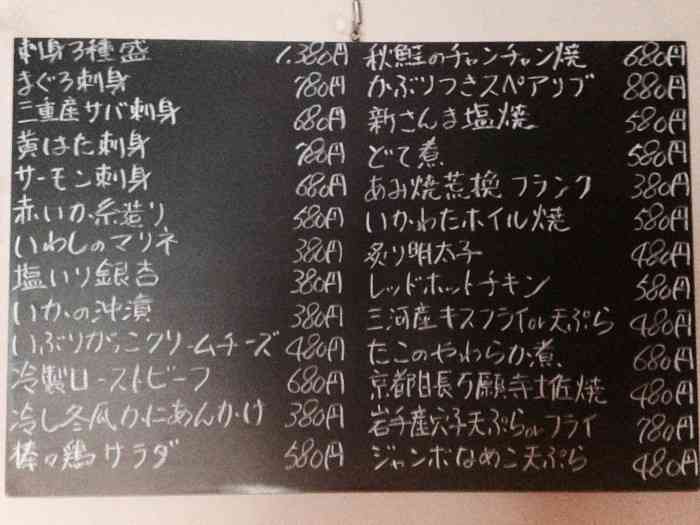 刺身3種盛 1.380円
まぐろ刺身 780円
三重産サバ刺身 680円
黄はた刺身 780円
サーモン刺身 680円
赤いか糸造り 580円
いわしのマリネ 380円
塩いり銀杏 380円
いかの沖漬 380円
いぶりがっこクリームチーズ 480円
冷製ローストビーフ 680円
冷し冬瓜かにあんかけ 380円
棒々鶏サラダ 580円
秋鮭のチャンチャン焼 680円
かぶりつきスペアリブ 880円
新さんま塩焼 580円
どて煮 580円
あみ焼荒挽フランク 380円
いかわたホイル焼 580円
炙り明太子 480円
レッドホットチキン 580円
三河産キスフライor天ぷら 480円
たこのやわらか煮 680円
京都甘長万願寺土佐焼 480円
岩手産穴子天ぷらorフライ 780円
ジャンボなめこ天ぷら 480円